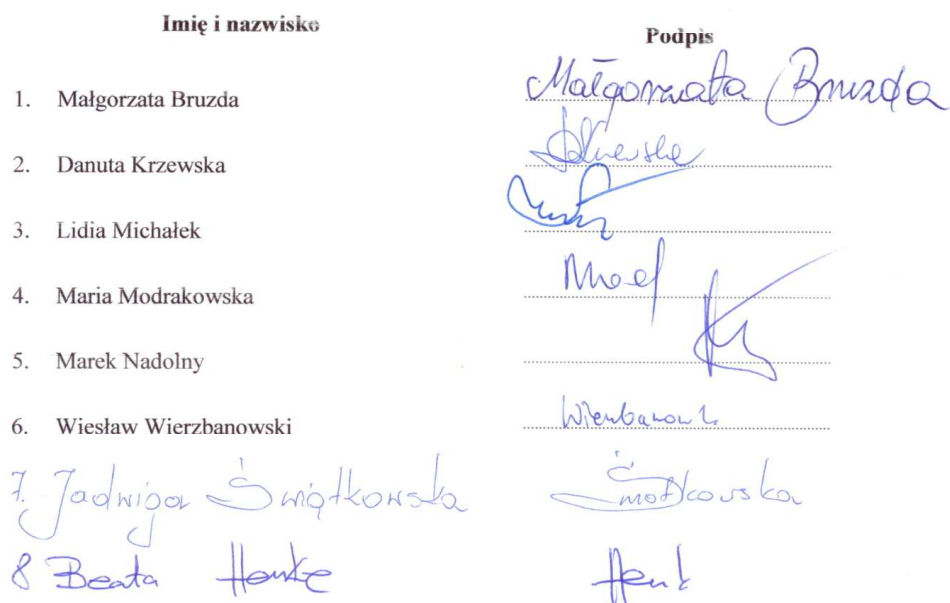 Imię i nazwisko Podpis
1. Małgorzata Bruzda Małgorzata Bruzda
2. Danuta Krzewska
3. Lidia Michałek
4. Maria Modrakowska
5. Marek Nadolny
6. Wiesław Wierzbanowski
7. Jadwiga Świątkowska Świątkowska
8 Beata Henke